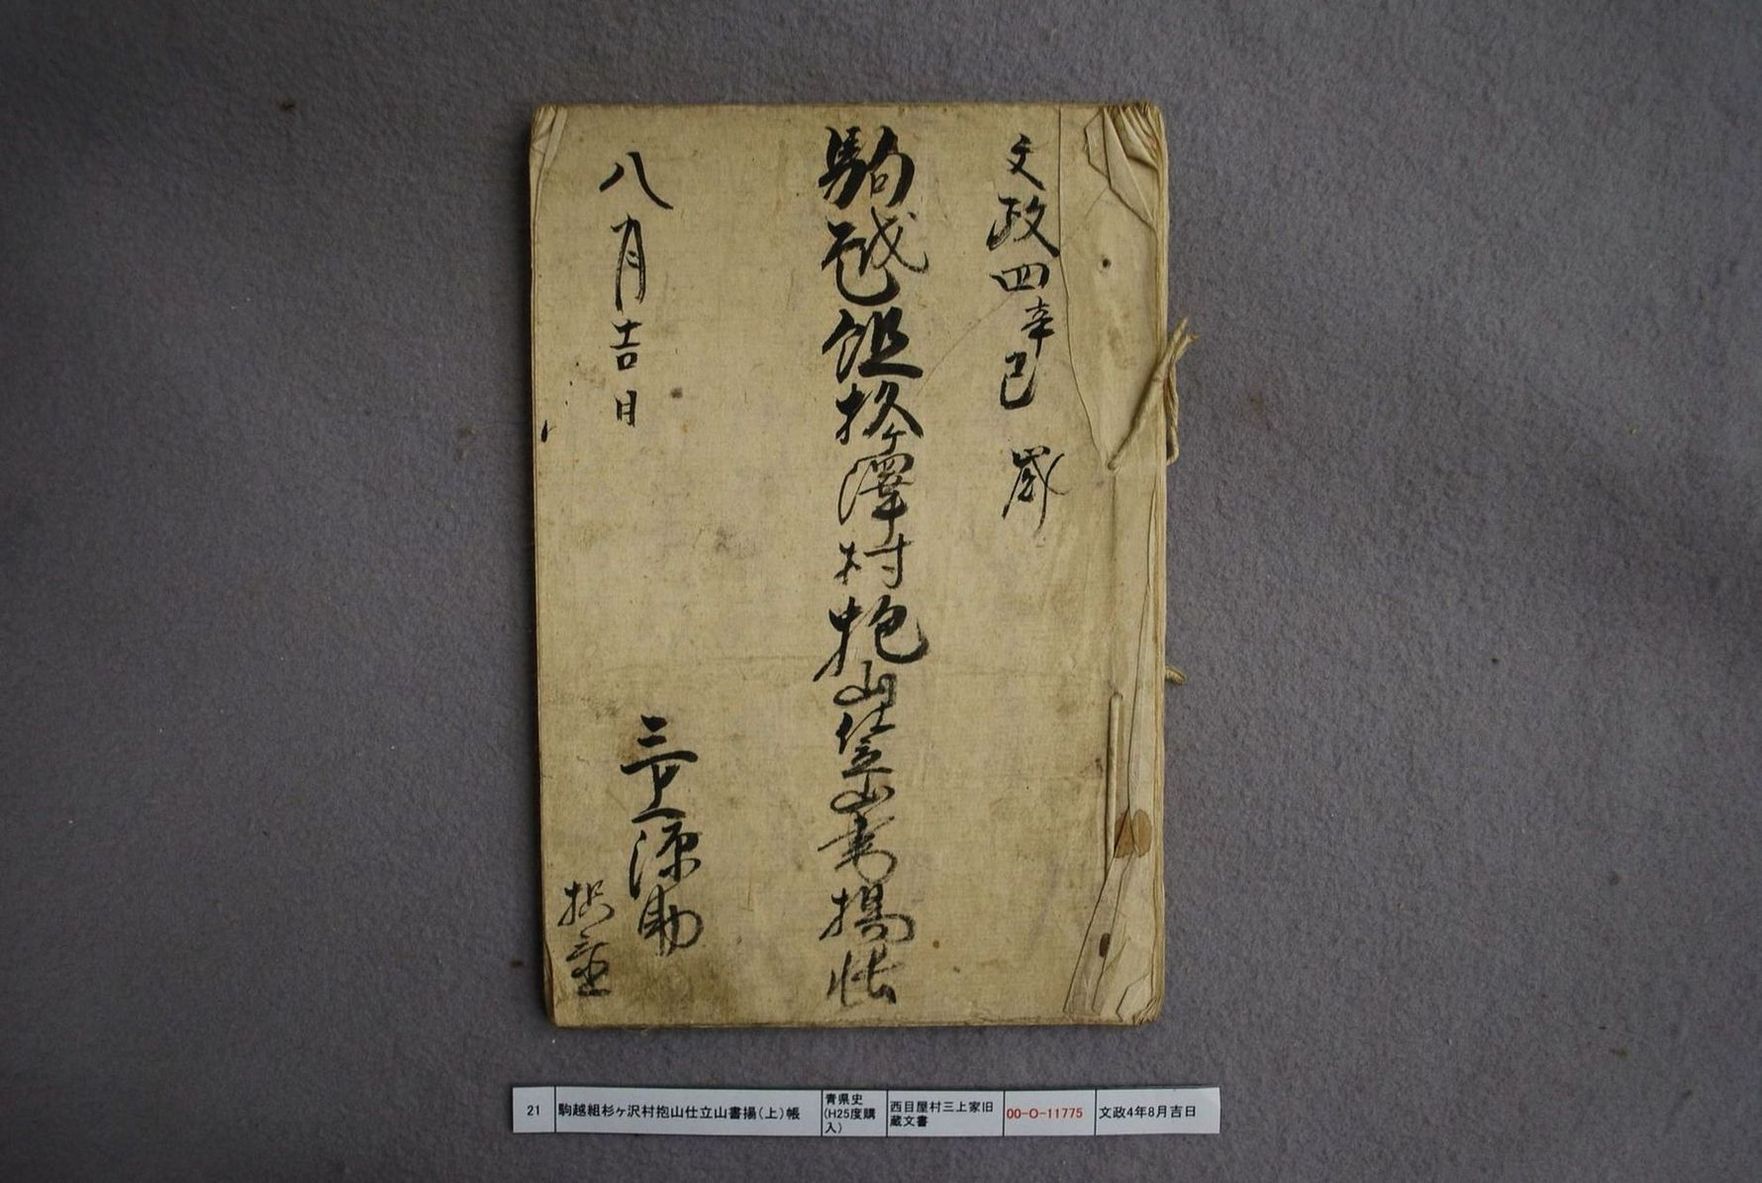 文政四辛巳歳
駒越組杉ヶ澤村抱山仕立山書揚帳
八月吉日
三上源助
扣
21
駒越組杉ヶ沢村抱山仕立山書揚(上)帳
青県史
(H25度購
入)
西目屋村三上家旧
蔵文書
00-O-11775
文政4年8月吉日